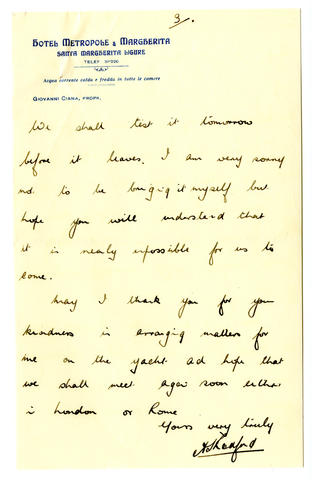 3/.
HOTEL METROPOLE & MARGHERITA
SANTA MARGHERITA LIGURE
TELEF Nº
Acqua corrente calda e fredda in tutte le camere
GIOVANNI CIANA, PROPR.
We shall test it tomorrow
before it leaves. I am very sorry
not to be bringing it myself but
hope you will understand that
it is nearly impossible for us to
come.
May I thank you for your
kindness in arranging matters for
me on the yacht and hope that
we shall meet again soon either
in London or Rome
Yours very truly